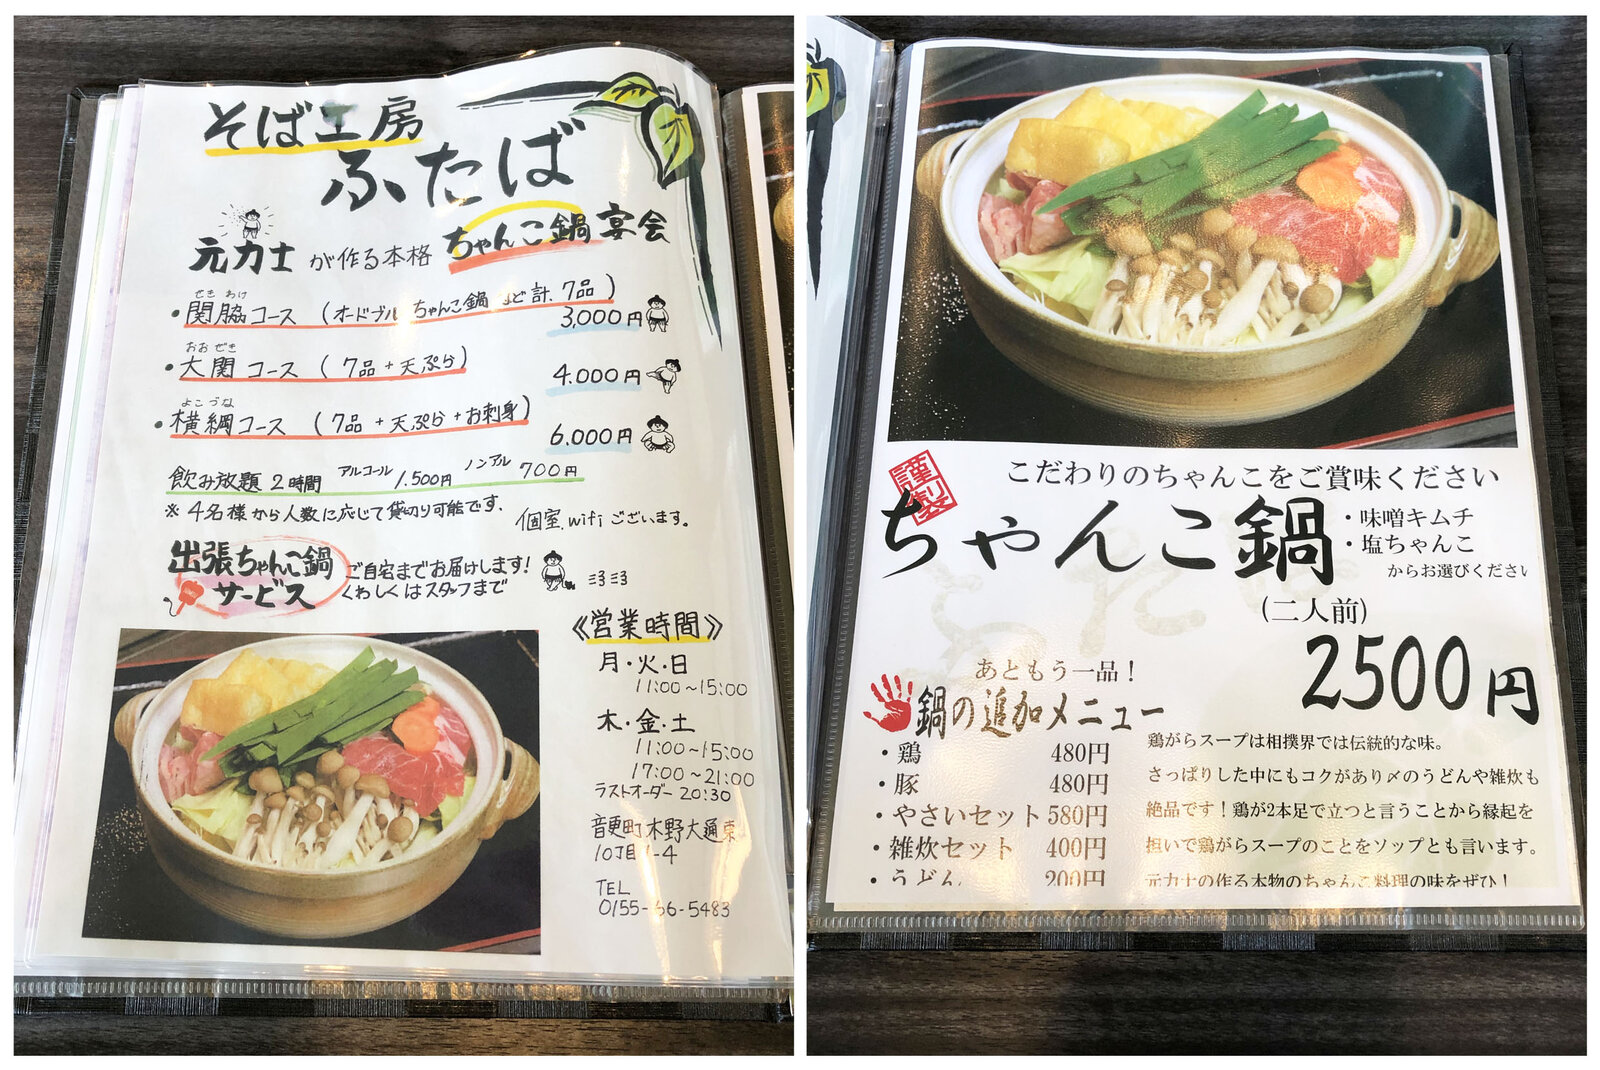 そば工房
ふたば
元力士 が作る本格 ちゃんこ鍋 宴会
せきわけ
・関脇コース (オードブル ちゃんこ鍋 など計.7品)
3,000円
おおぜき
・大関コース (7品+天ぷら)
4.000円
よこづな
・横綱コース (7品+天ぷら+お刺身)
6.000円
飲み放題 2時間 アルコール 1.500円 ノンアル 700円
※4名様から人数に応じて貸切り可能です.
個室.wifiございます。
出張ちゃんこ鍋
サービス
ご自宅までお届けします!
くわしくはスタッフまで
《営業時間》
月・火・日
11:00~15:00
木・金・土
11:00~15:00
17:00~21:00
ラストオーダー 20:30
音更町木野大通東
10丁目1-4
TEL
0155-66-5483
こだわりのちゃんこをご賞味ください
謹製
ちゃんこ鍋
・味噌キムチ
・塩ちゃんこ
からお選びください
(二人前)
2500円
あともう一品!
鍋の追加メニュー
・鶏 480円
・豚 480円
・やさいセット 580円
・雑炊セット 400円
・うどん 200円
鶏がらスープは相撲界では伝統的な味。
さっぱりした中にもコクがあり〆のうどんや雑炊も
絶品です!鶏が2本足で立つと言うことから縁起を
担いで鶏がらスープのことをソップとも言います。
元力士の作る本物のちゃんこ料理の味をぜひ!